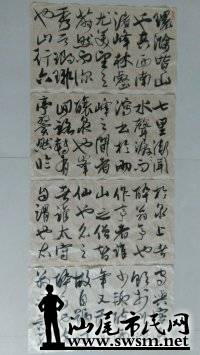 環滁皆山
也其西南
諸峰林壑
尤美望之
蔚然而深
秀者琅琊
也山行六
七里漸聞
水聲潺潺而
瀉出於兩
峰之間者
釀泉也峰
回路轉有
亭翼然臨
於泉上者
醉翁亭也
作亭者誰
山之僧智
仙也名之
者誰太守
自謂也太
守與客
少輒
年又最
故自號
汕尾市民网
www.swsm.net